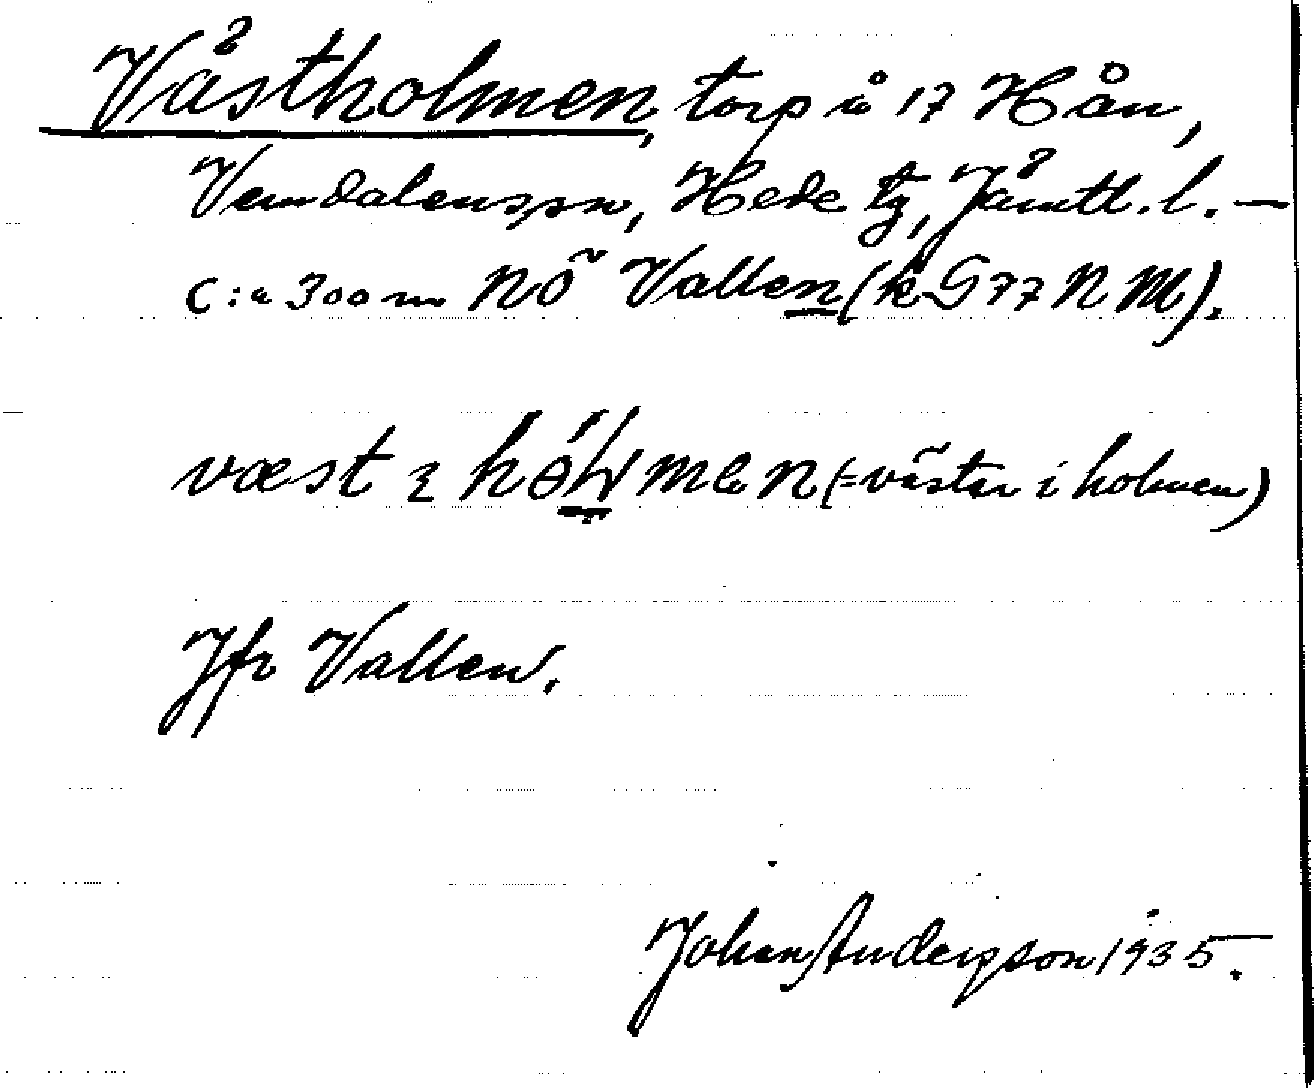 Västholmen, torp å 17 Hån,
Vemdalens sn, Hede tg, Jämtl. l. —
c:a 300 m NÖ Vallen (k G 77 N M).
väst i hólmen (= väster i holmen)
Jfr Vallen.
Johan Andersson 1935.